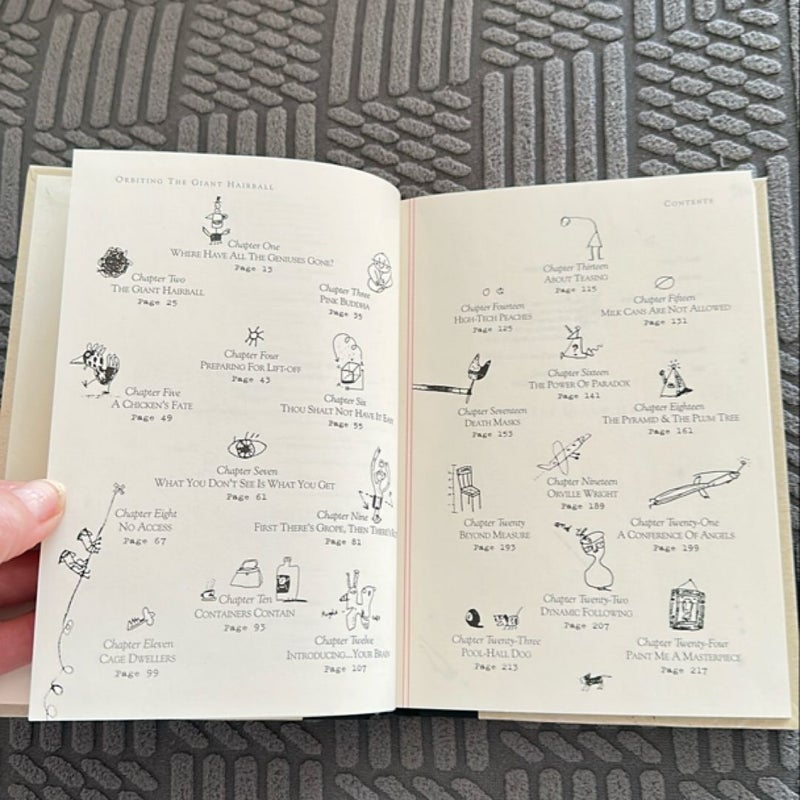 ORBITING THE GIANT HAIRBALL
Chapter One
WHERE HAVE ALL THE GENIUSES GONE?
Page 13
Chapter Two
THE GIANT HAIRBALL
Page 25
Chapter Three
PINK BUDDHA
Page 35
Chapter Four
PREPARING FOR LIFT-OFF
Page 43
Chapter Five
A CHICKEN'S FATE
Page 49
Chapter Six
THOU SHALT NOT HAVE IT
Page 55
Chapter Seven
WHAT YOU DON'T SEE IS WHAT YOU GET
Page 61
Chapter Eight
NO ACCESS
Page 67
Chapter Nine
FIRST THERE'S GROPE, THEN THERE'S
Page 81
Chapter Ten
CONTAINERS CONTAIN
Page 93
Chapter Eleven
CAGE DWELLERS
Page 99
Chapter Twelve
INTRODUCING...YOUR BRAIN
Page 107
CONTENTS
Chapter Thirteen
ABOUT TEASING
Page 115
Chapter Fourteen
HIGH-TECH PEACHES
Page 125
Chapter Fifteen
MILK CANS ARE NOT ALLOWED
Page 131
Chapter Sixteen
THE POWER OF PARADOX
Page 141
Chapter Seventeen
DEATH MASKS
Page 153
Chapter Eighteen
THE PYRAMID & THE PLUM TREE
Page 161
Chapter Nineteen
ORVILLE WRIGHT
Page 189
Chapter Twenty
BEYOND MEASURE
Page 193
Chapter Twenty-One
A CONFERENCE OF ANGELS
Page 199
Chapter Twenty-Two
DYNAMIC FOLLOWING
Page 207
Chapter Twenty-Three
POOL-HALL DOG
Page 213
Chapter Twenty-Four
PAINT ME A MASTERPIECE
Page 217